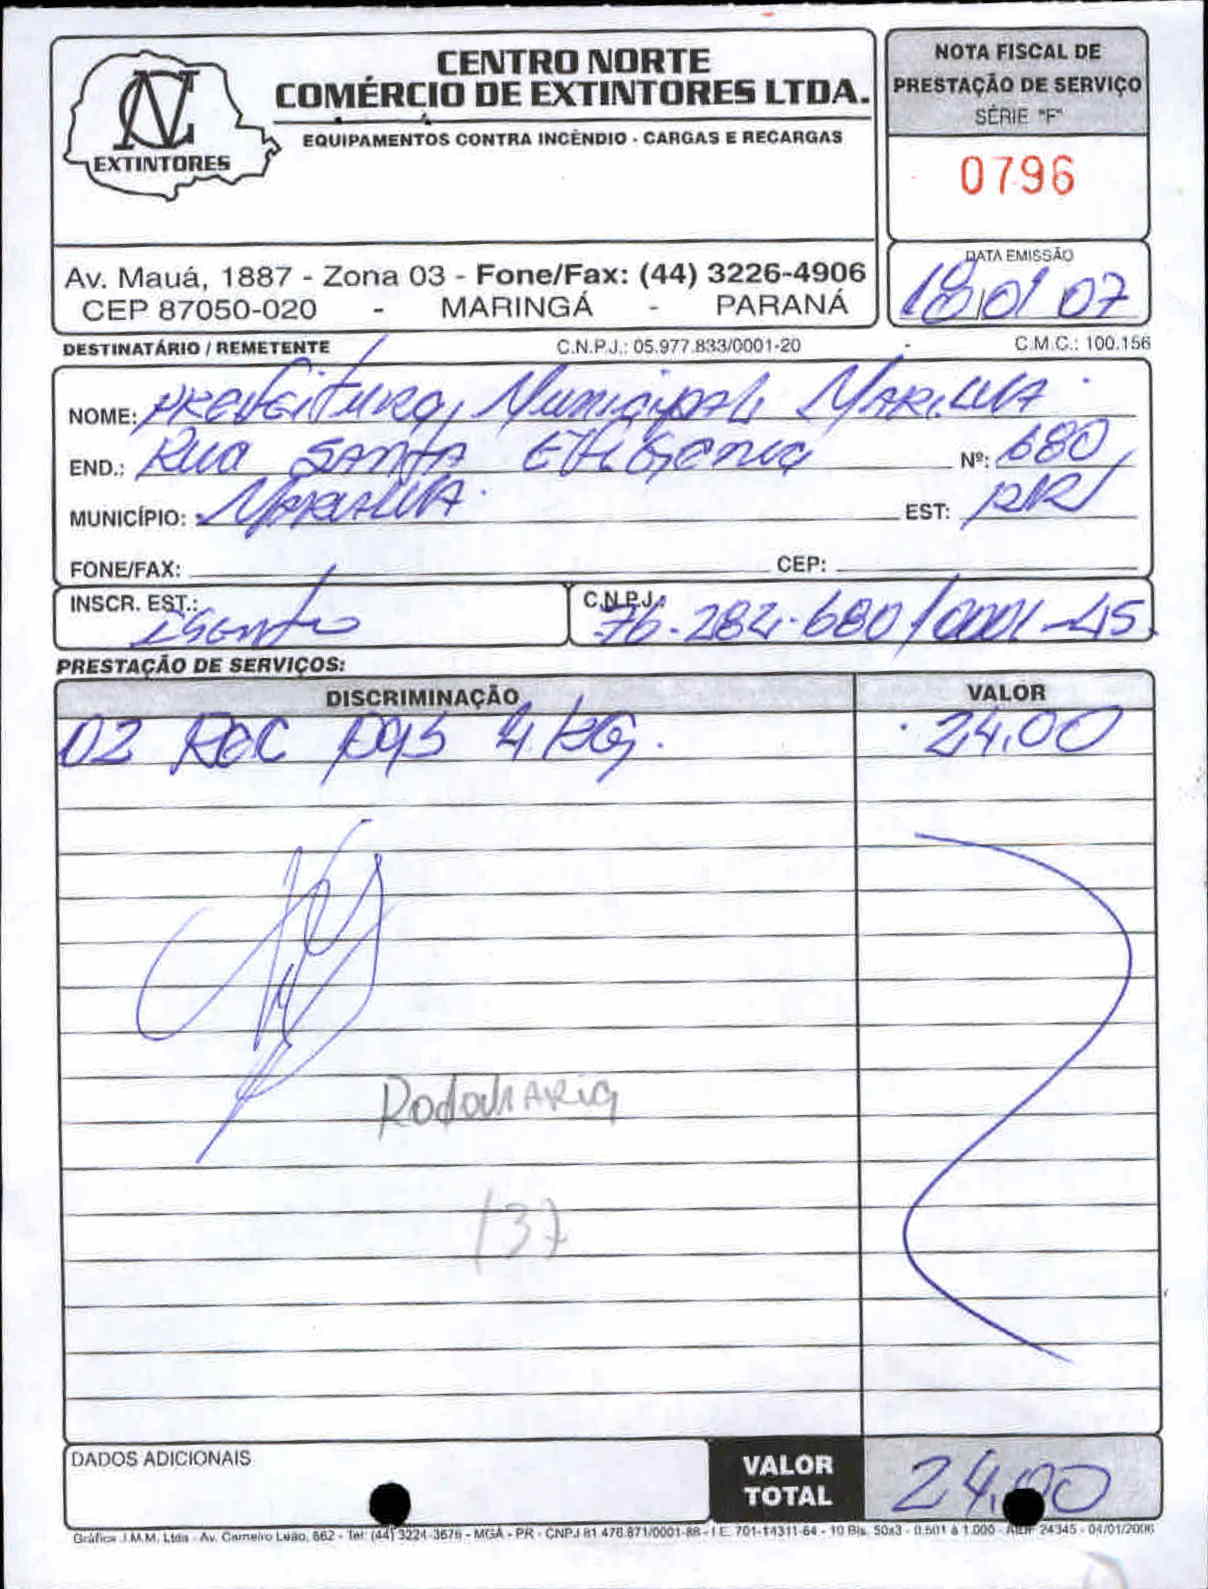 CENTRO NORTE
COMÉRCIO DE EXTINTORES LTDA.
EQUIPAMENTOS CONTRA INCÊNDIO - CARGAS E RECARGAS
NC
EXTINTORES
NOTA FISCAL DE
PRESTAÇÃO DE SERVIÇO
SÉRIE "F"
0796
Av. Mauá, 1887 - Zona 03 - Fone/Fax: (44) 3226-4906
CEP 87050-020 - MARINGÁ - PARANÁ
DATA EMISSÃO
18 01 07
DESTINATÁRIO / REMETENTE C.N.P.J.: 05.977.833/0001-20 - C.M.C.: 100.156
NOME: PREFEITURA, Municipal, MARiLUVA
END.: RUA SANTA EFIGENIA Nº: 680
MUNICÍPIO: MARILUVA EST: PR
FONE/FAX: CEP:
INSCR. EST.: Isento C.N.P.J.: 76.284.680/0001-45
PRESTAÇÃO DE SERVIÇOS:
DISCRIMINAÇÃO VALOR
02 REC PQS 4 KG. 24,00
RodoviARia
137
DADOS ADICIONAIS
VALOR TOTAL 24,00
Gráfica J.M.M. Ltda - Av. Carneiro Leão, 662 - Tel: (44) 3224-3676 - MGÁ - PR - CNPJ 81.476.871/0001-88 - I.E. 701-14311-64 - 10 Bls. 50x3 - 0.501 à 1.000 - AIDF 24345 - 04/01/2006